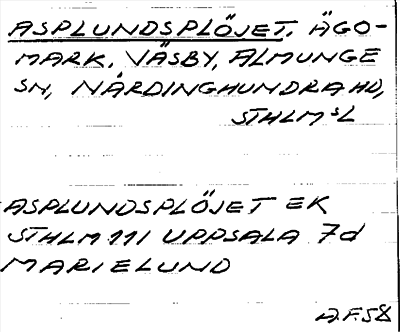 ASPLUNDSPLÖJET. ÄGO-
MARK. VÄSBY, ALMUNGE
SN, NÄRDINGHUNDRA HD,
STHLM SL
ASPLUNDSPLÖJET EK
STHLM 111 UPPSALA 7d
MARIELUND
A.F.58